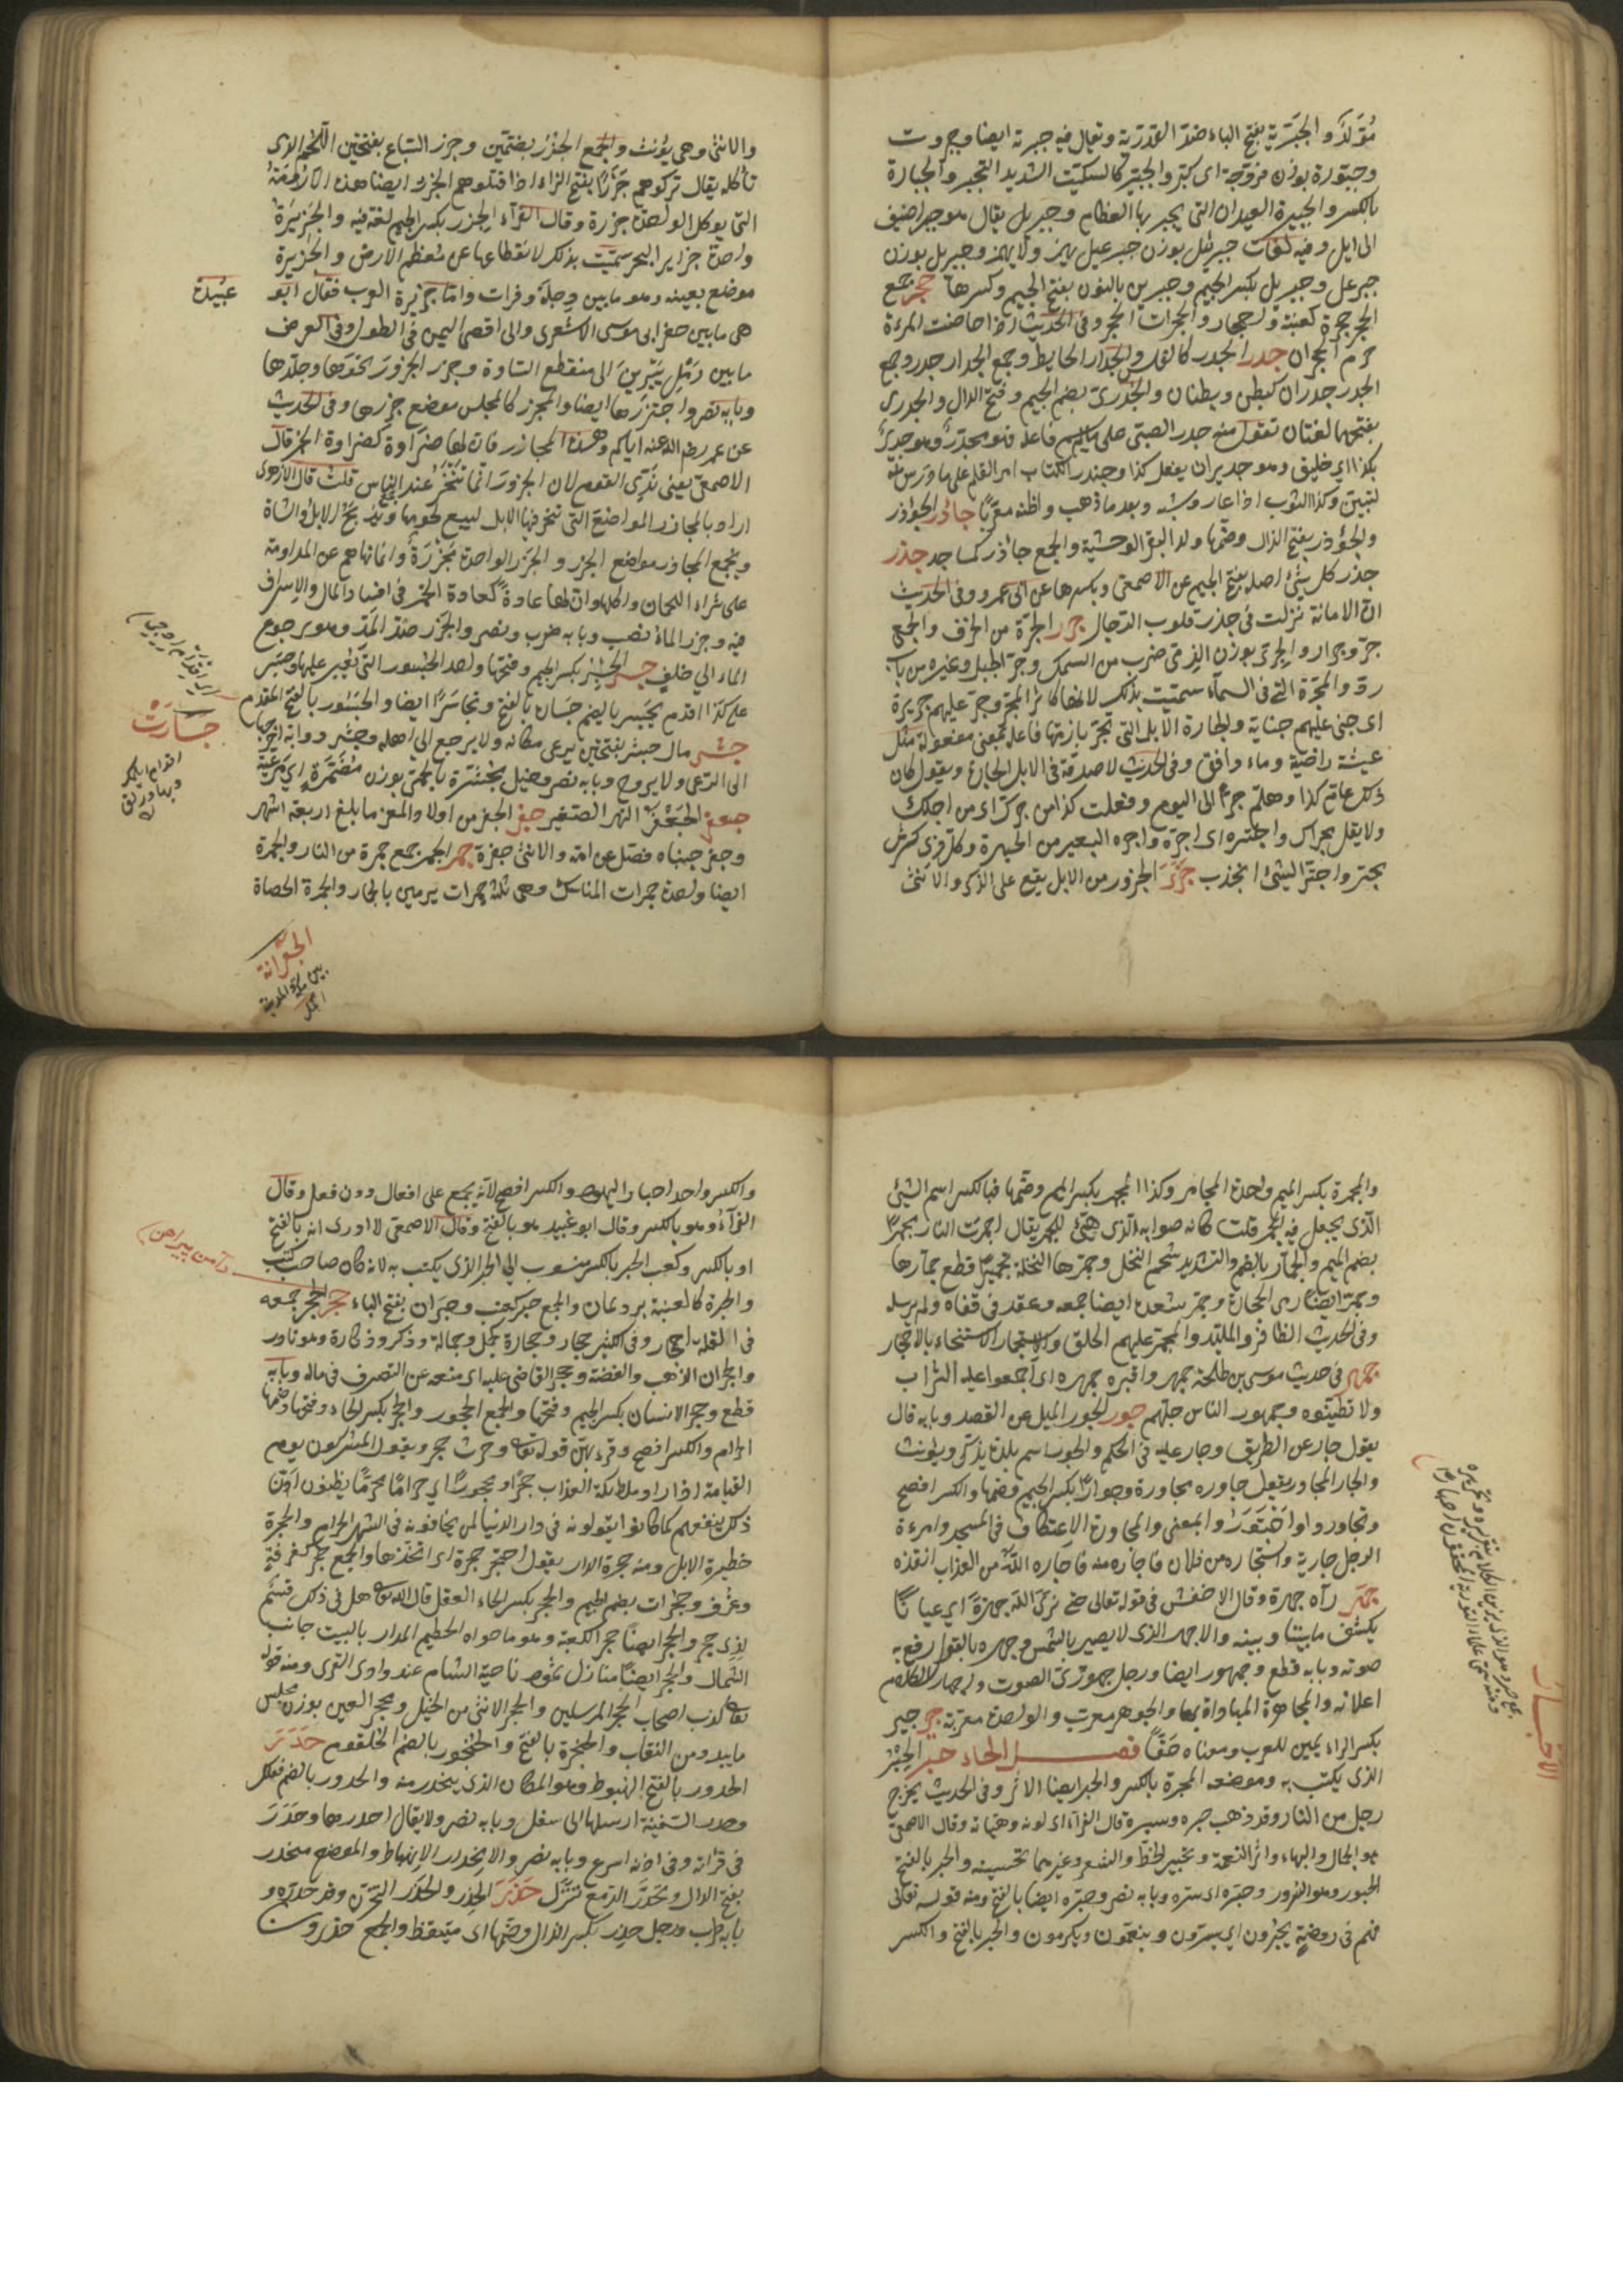 مُوَلَّدٌ والجَبَرِيّة بفتح الباء ضدّ القدرية ويقال فيه جبرية ايضا وجبروت
وجبّورة بوزن فرّوجة اى كبر والجبّير كالسكّيت الشديد التجبر والجبارة
بالكسر والجبيرة العيدان التى يجبر بها العظام وجبريل يقال هو جبر اضيف
الى ايل وفيه لغات جبرئيل بوزن جبرعيل يهمز ولا يهمز وجبرئل بوزن
جبرعل وجبريل بكسر الجيم وجبرين بالنون بفتح الجيم وكسرها جحر جمع
الجحر جحرة كعنبة واجحار والجحران الجحر وفى الحديث اذا حاضت المرءة
حرم الجحران جدر الجدر كالفلس والجدار الحايط وجمع الجدار جدر وجمع
الجدر جدران كبطن وبطنان والجدرىّ بضم الجيم وفتح الدال والجدرى
بفتحهما لغتان تقول منه جدر الصبى على ما لم يسم فاعله فهو مجدّر وهو جدير
بكذا اى خليق وهو جدير ان يفعل كذا وجندر الكتاب امر القلم على ما درس منه
ليتبين وكذا الثوب اذا عاد وشيه وبعد ما ذهب واظنه معرّبا جأذر الجؤذر
والجؤذر بفتح الذال وضمها ولد البقر الوحشية والجمع جآذر كمساجد جذر
جذر كل شئ اصله بفتح الجيم عن الاصمعى وبكسرها عن ابى عمرو وفى الحديث
انّ الامانة نزلت فى جذر قلوب الرجال جرر الجرّة من الخزف والجمع
جرّ وجرار والجرىّ بوزن الذمى ضرب من السمك وجرّ الحبل وغيره من باب
ردّ والمجرّة التى فى السماء سميت بذلك لانها كاثر المجرّ وجرّ عليهم جريرة
اى جنى عليهم جناية والجارة الابل التى تجرّ بازمتها فاعلة بمعنى مفعولة مثل
عيشة راضية وماء دافق وفى الحديث لا صدقة فى الابل الجارة ويقول كان
ذلك عام كذا وهلم جرّا الى اليوم وفعلت كذا من جرّاك اى من اجلك
ولا يقل بجراك واجترّه اى اجرّه واجره البعير من الجرة وكل ذى كرش
يجتر واجترّ الشئ انجذب جزر الجزور من الابل يقع على الذكر والانثى
والانثى وهى يؤنث والجمع الجزر بضمّتين وجزر السباع بفتحتين اللحم الذى
تأكله يقال تركوهم جَزَرًا بفتح الزاء اذا قتلوهم الجزر ايضا هذه الارومة
التى يوكل الواحدة جزرة وقال الفرّاء الجزر بكسر الجيم لغة فيه والجَزيرة
واحدة جزاير البحر سمّيت بذلك لانقطاعها عن معظم الارض والجزيرة
موضع بعينه وهو ما بين دجلة وفرات وامّا جزيرة العرب فقال ابو عبيدة
هى ما بين حفر ابى موسى الاشعرى والى اقصى اليمن فى الطول وفى العرض
ما بين رمل يبرين الى منقطع السماوة وجزر الجزور نحرها وجلدها
وبابه نصر واجتزرها ايضا والمجزر كالمجلس موضع جزرها وفى الحديث
عن عمر رضى الله عنه اياكم وهذه المجازر فان لها ضراوة كضراوة الخمر قال
الاصمعى يعنى ندىّ القوم لان الجزور انما تنحر عند الناس قلت قال الازهرى
اراد بالمجازر المواضع التى تنحر فيها الابل لبيع لحومها وتذبح الابل والشاة
وتجمع المجازر مواضع الجزر والجزر الواحدة مَجزَرة وانما نهاهم عن المداومة
على شراء اللحمان واكلها وان لها عادة كعادة الخمر فى افساد المال والاسراف
فيه وجزر الماء نضب وبابه ضرب ونصر والجزر ضدّ المدّ وهو رجوع
الماء الى خلف جسر الجسر بكسر الجيم وفتحها واحد الجسور التى يعبر عليها وجسر
على كذا اقدم يجسر بالضم جسارة بالفتح وتجاسر ايضا والجسور بالفتح المقدام
جشر مال جشر بفتحتين يرعى مكانه ولا يرجع الى اهله وجشر دوابه اخرجها
الى الرعى ولا يروح وبابه نصر وخيل مجشّرة بالحمى بوزن مضمرة اى مرعية
جعفر الجعفر النهر الصغير جفر الجفر من اولاد المعز ما بلغ اربعة اشهر
وجفر جنباه فصل عن امه والانثى جفرة جمر الجمر جمع جمرة من النار والجمرة
ايضا واحدة جمرات المناسك وهى ثلث جمرات يرمين بالجمار والجمرة الحصاة
جسارت
الجعرانة
والمجمرة بكسر الميم واحدة المجامر وكذا المجمر بكسر الميم وضمها فبالكسر اسم الشئ
الذى يجعل فيه الجمر قلت كانه صوابه الذى هيّئ للجمر يقال اجمرت النار مجمرًا
بضم الميم والجمّار بالضم والتشديد شحم النخل وجمّرها النخلة تجميرًا قطع جمّارها
وجمّر ايضا رمى الجمار وجمّر شعره ايضا جمعه وعقده فى قفاه ولم يرسله
وفى الحديث الضافر والملبّد والمجمّر عليهم الحلق والاستجمار الاستنجاء بالاحجار
جمهر فى حديث موسى بن طلحة جمهروا قبره جمهرة اى اجمعوا عليه التراب
ولا تطيّنوه وجمهور الناس جلّهم جور الجور الميل عن القصد وبابه قال
يقول جار عن الطريق وجار عليه فى الحكم والجور اسم بلد يذكّر ويؤنث
والجار المجاور يقول جاوره مجاورة وجوارًا بكسر الجيم وضمها والكسر افصح
وتجاوروا واجتوروا بمعنى والمجاورة الاعتكاف فى المسجد وامرءة
الرجل جارية واستجاره من فلان فاجاره منه فاجاره الله من العذاب انقذه
جهر رآه جهرة وقال الاخفش فى قوله تعالى حتى نرى الله جهرة اى عيانًا
يكشف ما بيننا وبينه والاجهر الذى لا يبصر بالشمس وجهره بالقول رفع به
صوته وبابه قطع وجهور ايضا ورجل جهورىّ الصوت واجهار الكلام
اعلانه والمجاهرة المباداة بها والجوهر معرب والواحدة معربة جير جير
بكسر الراء يمين للعرب ومعناه حقًّا فصل الحاء حبر الحبر
الذى يكتب به وموضعه المحبرة بالكسر والحبر ايضا الاثر وفى الحديث يخرج
رجل من النار وقد ذهب حبره وسبره قال الفرّاء اى لونه وهيئاته وقال الاصمعى
هو الجمال والبهاء واثر النعمة وتحبير الخط والشعر وغيرهما تحسينه والحبر بالفتح
الحبور وهو السرور وحبره اى سره وبابه نصر وحبرة ايضا بالفتح ومنه قوله تعالى
فهم فى روضة يحبرون اى يسرّون وينعّمون ويكرمون والحبر بالفتح والكسر
والكسر واحد احبار اليهود والكسر افصح لانه يجمع على افعال دون فعل وقال
الفرّاء وهو بالكسر وقال ابو عبيد هو بالفتح وقال الاصمعى لا ادرى انه بالفتح
او بالكسر وكعب الحبر بالكسر منسوب الى الحبر الذى يكتب به لانه كان صاحب كتب
والحبرة كالعنبة برد يمان والجمع حبر كعنب وحبرات بفتح الباء حجر الحجر جمعه
فى القلة احجار وفى الكثير حجار وحجارة كجمل وجمالة وذكر وذكارة وهو نادر
والحجران الذهب والفضة وحجر القاضى عليه اى منعه عن التصرف فى ماله وبابه
قطع وحجر الانسان بكسر الجيم وفتحها والجمع الحجور والحجر بكسر الحاء وفتحها وضمها
الحرام والكسر افصح وقرء بهنّ قوله تعالى وحرث حجر ويقول المشركون يوم
القيامة اذا راوا ملئكة العذاب حجرًا محجورًا اى حرامًا محرّمًا يظنون انّ
ذلك ينفعهم كما كانوا يقولونه فى دار الدنيا لمن يخافونه فى الشهر الحرام والحجرة
حظيرة الابل ومنه حجرة الدار يقول احتجر حجرة اى اتخذها والجمع حجر كغرفة
وغرف وحجرات بضم الجيم والحجر بكسر الحاء العقل قال الله تعالى هل فى ذلك قسم
لذى حجر والحجر ايضا حجر الكعبة وهو ما حواه الحطيم المدار بالبيت جانب
الشمال والحجر ايضا منازل ثمود ناحية الشام عند وادى القرى ومنه قوله
تعالى كذب اصحاب الحجر المرسلين والحجر الانثى من الخيل ومحجر العين بوزن مجلس
ما يبدو من النقاب والحنجرة بالفتح والحنجور بالضم الحلقوم حدر
الحدور بالفتح الهبوط وهو المكان الذى ينحدر منه والحدور بالضم فعلك
وحدر السفينة ارسلها الى سفل وبابه نصر ولا يقال احدرها وحدر
فى قرائه وفى اذانه اسرع وبابه نصر والانحدار الانهباط والموضع منحدر
بفتح الدال وتحدّر الدمع تنزّل حذر الحذر والحذر التحرّز وقد حذره و
بابه طرب ورجل حذر بكسر الذال وضمها اى متيقظ والجمع حذرون